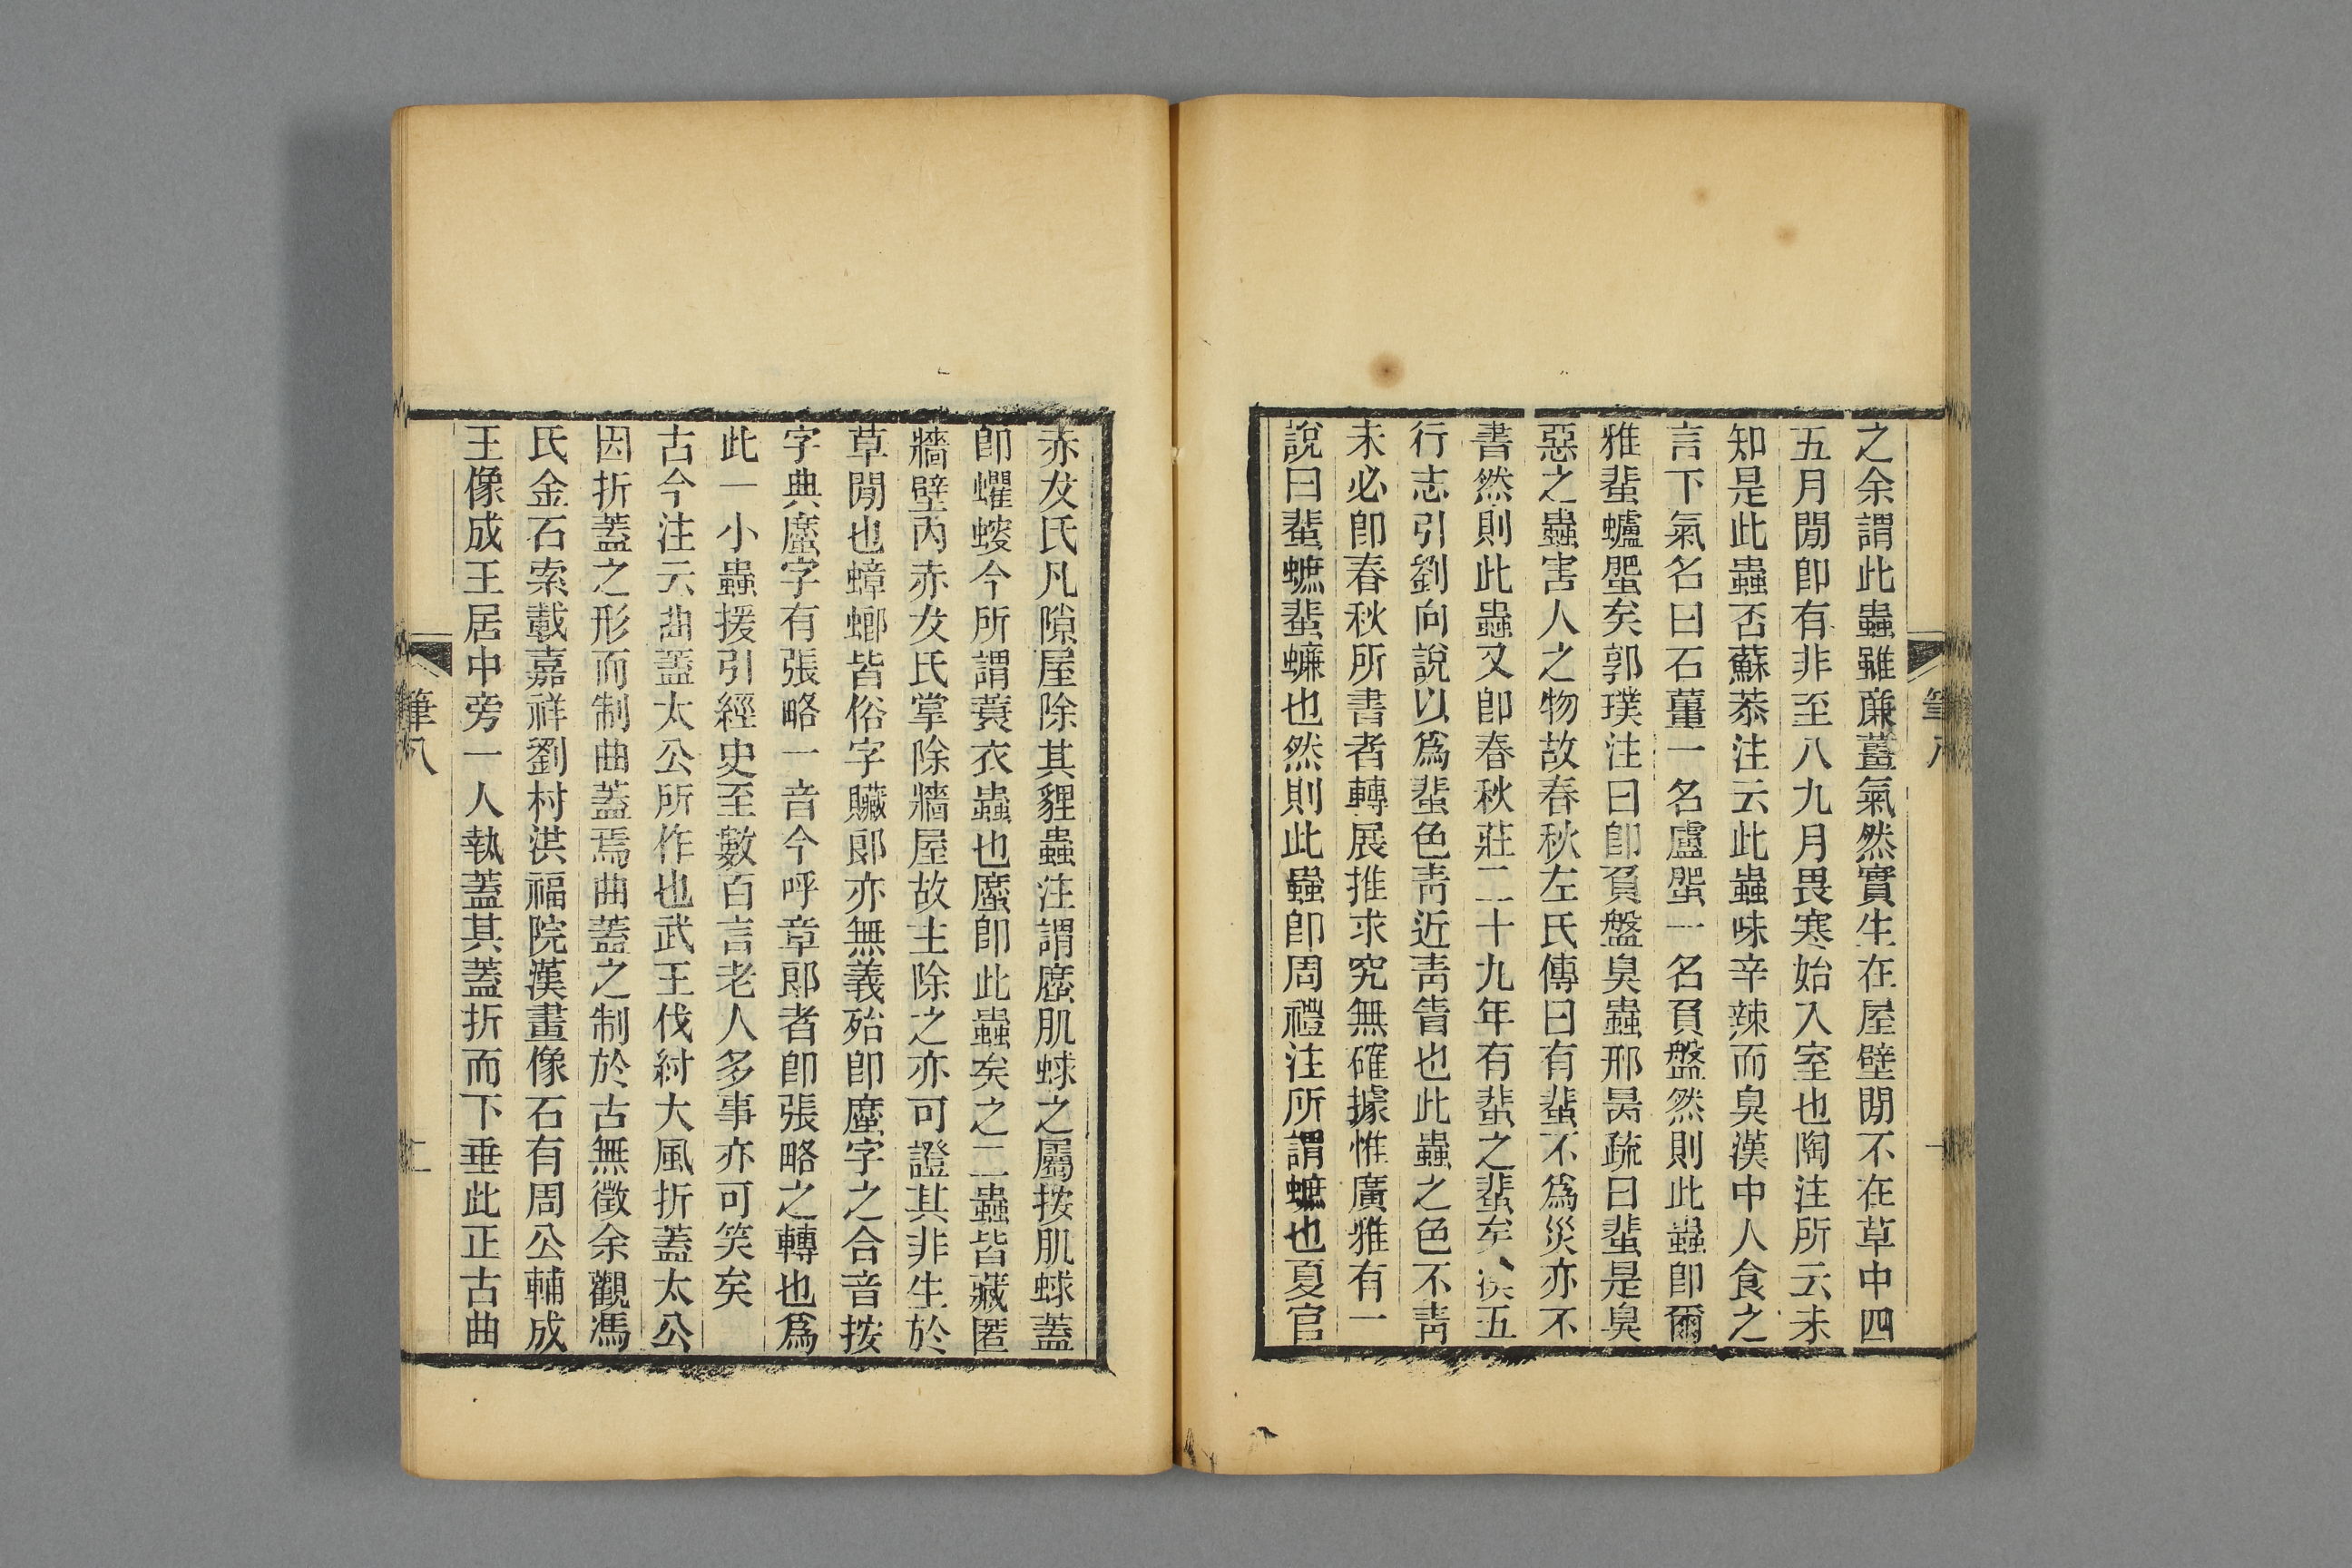 之余謂此蟲雖廉薑氣然實生在屋壁閒不在草中四
五月閒卽有非至八九月畏寒始入室也陶注所云未
知是此蟲否蘇恭注云此蟲味辛辣而臭漢中人食之
言下氣名曰石薑一名盧蜰一名負盤然則此蟲卽爾
雅蜚蠦蜰矣郭璞注曰卽負盤臭蟲邢昺疏曰蜚是臭
惡之蟲害人之物故春秋左氏傳曰有蜚不爲災亦不
書然則此蟲又卽春秋莊二十九年有蜚之蜚矣漢五
行志引劉向說以爲蜚色靑近靑眚也此蟲之色不靑
未必卽春秋所書者轉展推求究無確據惟廣雅有一
說曰蜚蟅蜚蠊也然則此蟲卽周禮注所謂蟅也夏官
赤犮氏凡隙屋除其貍蟲注謂䗪肌蛷之屬按肌蛷蓋
卽蠷螋今所謂蓑衣蟲也䗪卽此蟲矣之二蟲皆藏匿
牆壁丙赤犮氏掌除牆屋故主除之亦可證其非生於
草閒也蟑螂皆俗字贓郞亦無義殆卽䗪字之合音按
字典䗪字有張略一音今呼章郞者卽張略之轉也爲
此一小蟲援引經史至數百言老人多事亦可笑矣
古今注云曲蓋太公所作也武王伐紂大風折蓋太公
因折蓋之形而制曲蓋焉曲蓋之制於古無徵余觀馮
氏金石索載嘉祥劉村洪福院漢畫像石有周公輔成
王像成王居中旁一人執蓋其蓋折而下垂此正古曲
筆八
二